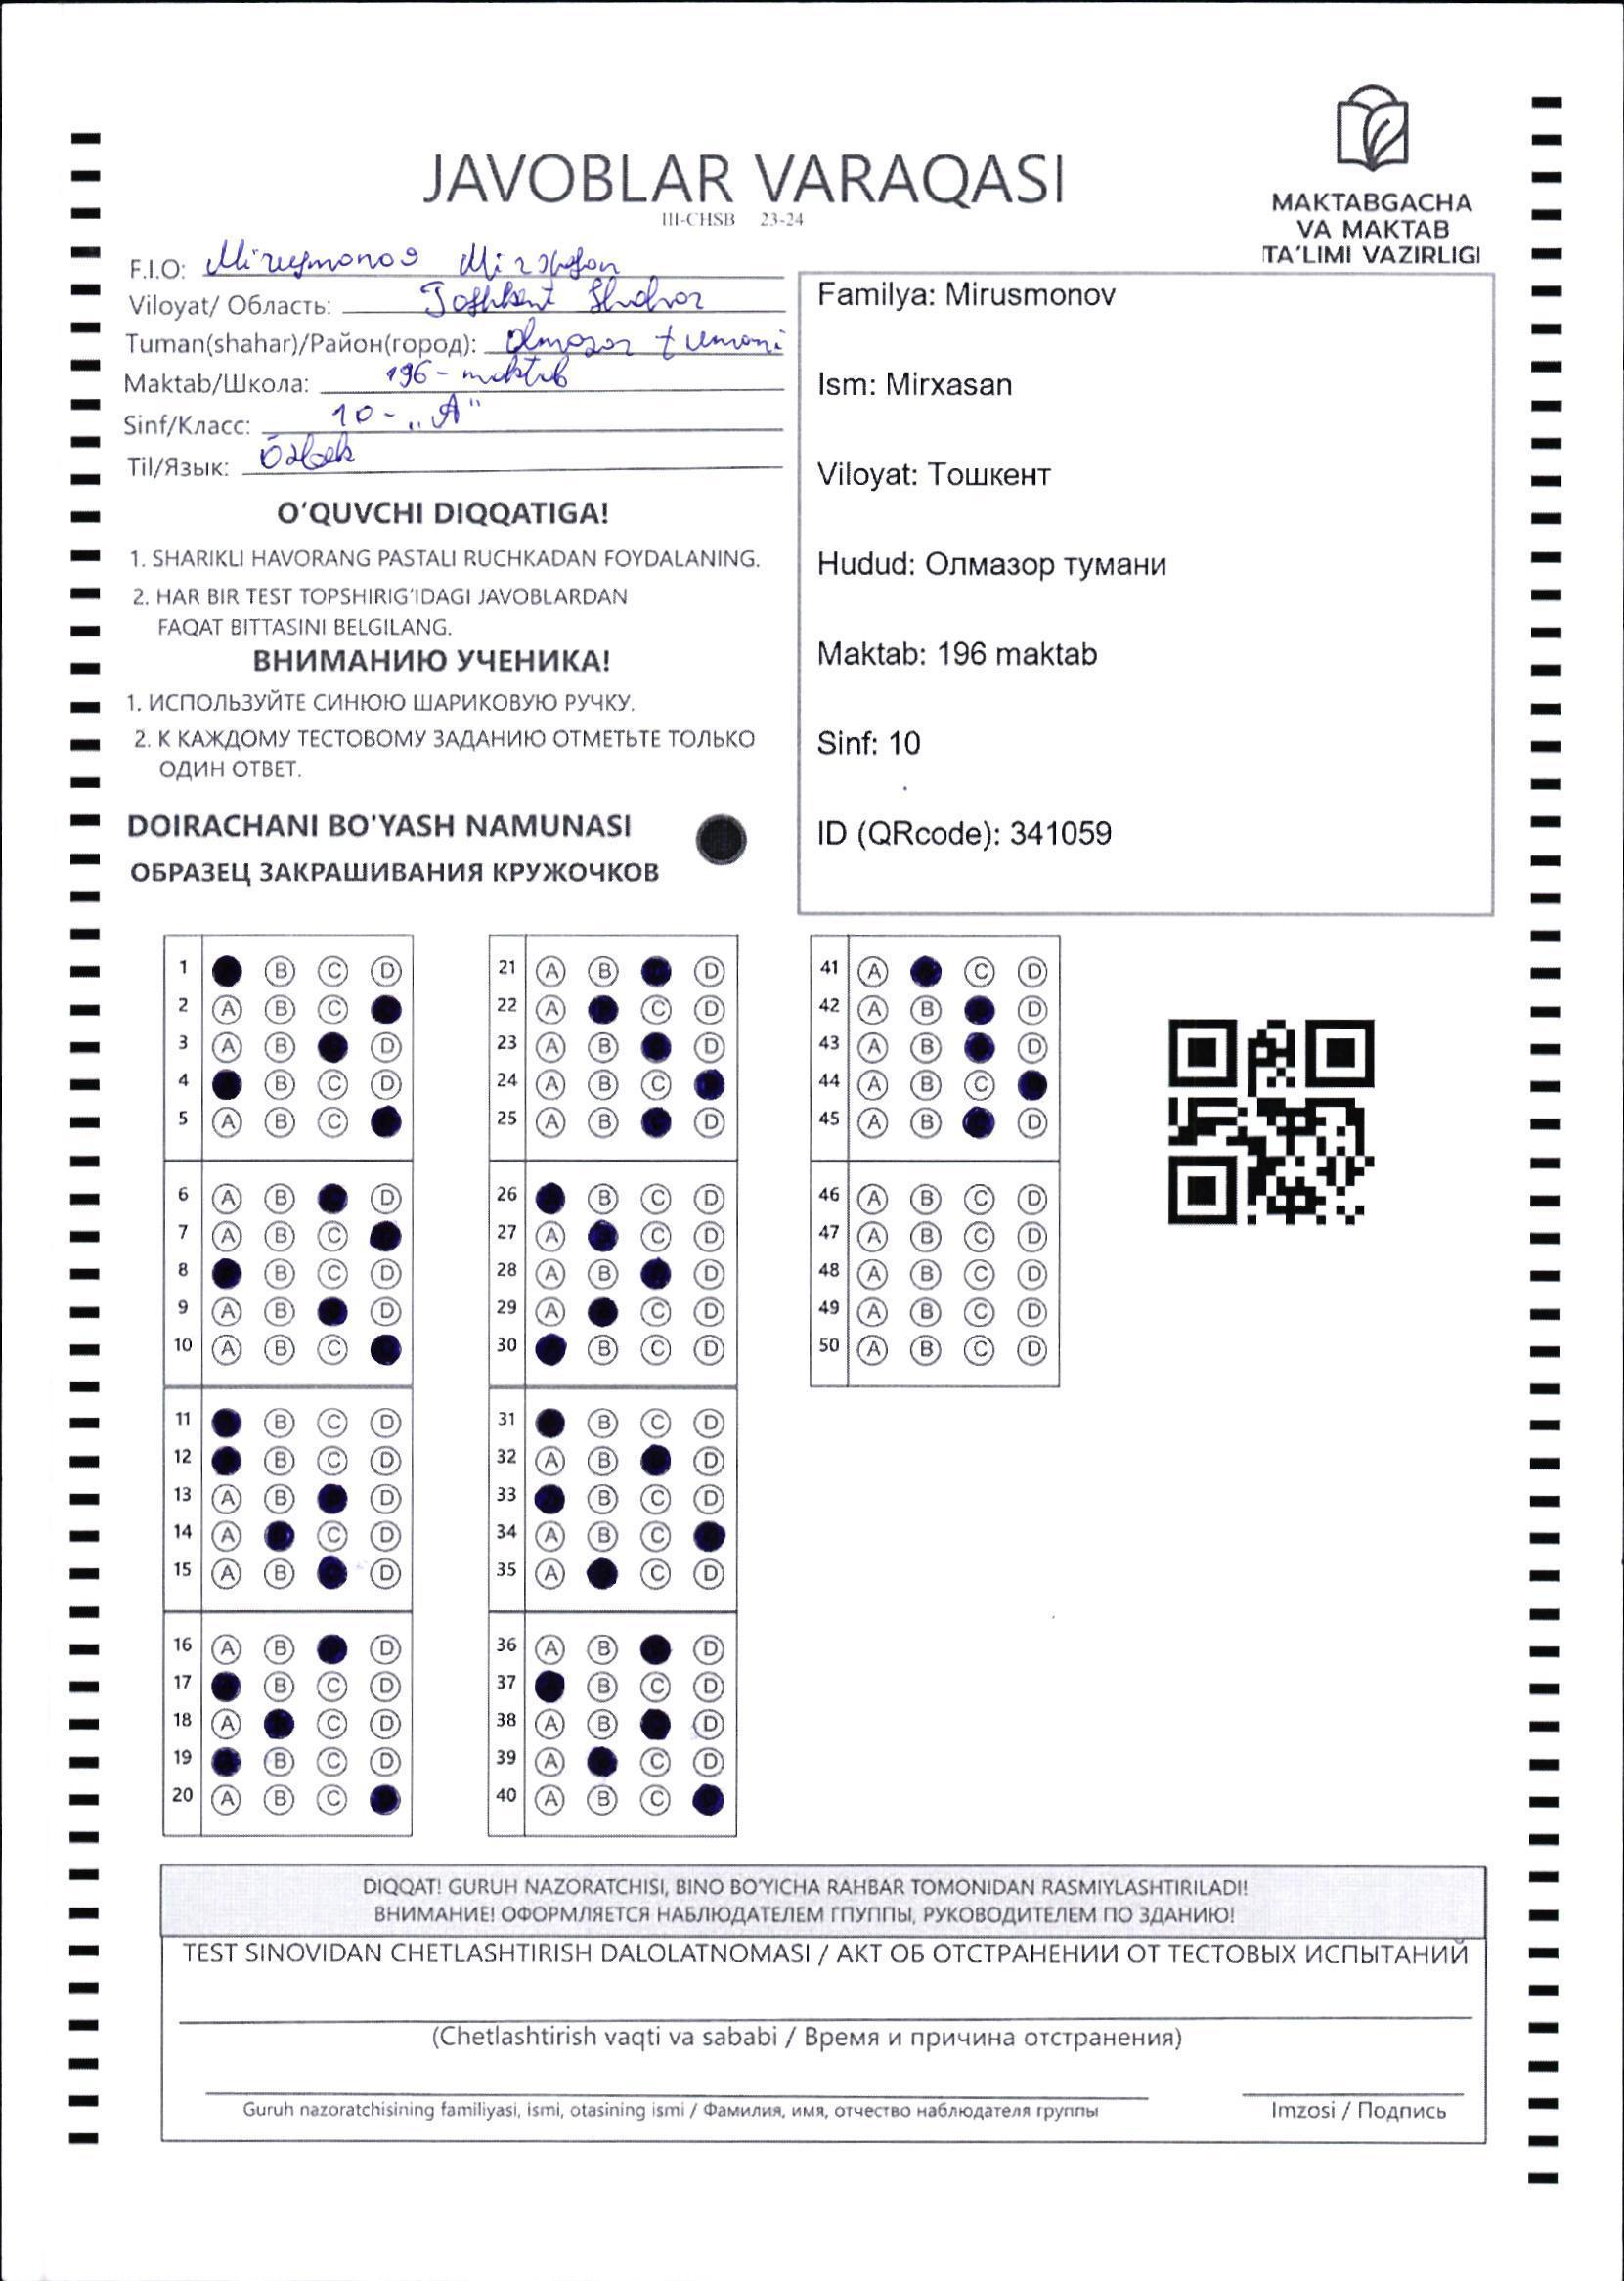 JAVOBLAR VARAQASI
III-CHSB 23-24
MAKTABGACHA
VA MAKTAB
TA'LIMI VAZIRLIGI
F.I.O: Mirusmonov
Viloyat/ Область: Toshkent Shahar
Tuman(shahar)/Район(город): Olmazor tumani
Maktab/Школа: 196 - maktab
Sinf/Класс: 10 - „A"
Til/Язык: Ōzbek
O‘QUVCHI DIQQATIGA!
1. SHARIKLI HAVORANG PASTALI RUCHKADAN FOYDALANING.
2. HAR BIR TEST TOPSHIRIG‘IDAGI JAVOBLARDAN
FAQAT BITTASINI BELGILANG.
ВНИМАНИЮ УЧЕНИКА!
1. ИСПОЛЬЗУЙТЕ СИНЮЮ ШАРИКОВУЮ РУЧКУ.
2. К КАЖДОМУ ТЕСТОВОМУ ЗАДАНИЮ ОТМЕТЬТЕ ТОЛЬКО
ОДИН ОТВЕТ.
DOIRACHANI BO'YASH NAMUNASI
ОБРАЗЕЦ ЗАКРАШИВАНИЯ КРУЖОЧКОВ
Familya: Mirusmonov
Ism: Mirxasan
Viloyat: Тошкент
Hudud: Олмазор тумани
Maktab: 196 maktab
Sinf: 10
ID (QRcode): 341059
1 B C D
2 A B C
3 A B D
4 B C D
5 A B C
6 A B D
7 A B C
8 B C D
9 A B D
10 A B C
11 B C D
12 B C D
13 A B D
14 A C D
15 A B D
16 A B D
17 B C D
18 A C D
19 B C D
20 A B C
21 A B D
22 A C D
23 A B D
24 A B C
25 A B D
26 B C D
27 A C D
28 A B D
29 A C D
30 B C D
31 B C D
32 A B D
33 B C D
34 A B C
35 A C D
36 A B D
37 B C D
38 A B D
39 A C D
40 A B C
41 A C D
42 A B D
43 A B D
44 A B C
45 A B D
46 A B C D
47 A B C D
48 A B C D
49 A B C D
50 A B C D
DIQQAT! GURUH NAZORATCHISI, BINO BO‘YICHA RAHBAR TOMONIDAN RASMIYLASHTIRILADI!
ВНИМАНИЕ! ОФОРМЛЯЕТСЯ НАБЛЮДАТЕЛЕМ ГПУППЫ, РУКОВОДИТЕЛЕМ ПО ЗДАНИЮ!
TEST SINOVIDAN CHETLASHTIRISH DALOLATNOMASI / АКТ ОБ ОТСТРАНЕНИИ ОТ ТЕСТОВЫХ ИСПЫТАНИЙ
(Chetlashtirish vaqti va sababi / Время и причина отстранения)
Guruh nazoratchisining familiyasi, ismi, otasining ismi / Фамилия, имя, отчество наблюдателя группы
Imzosi / Подпись